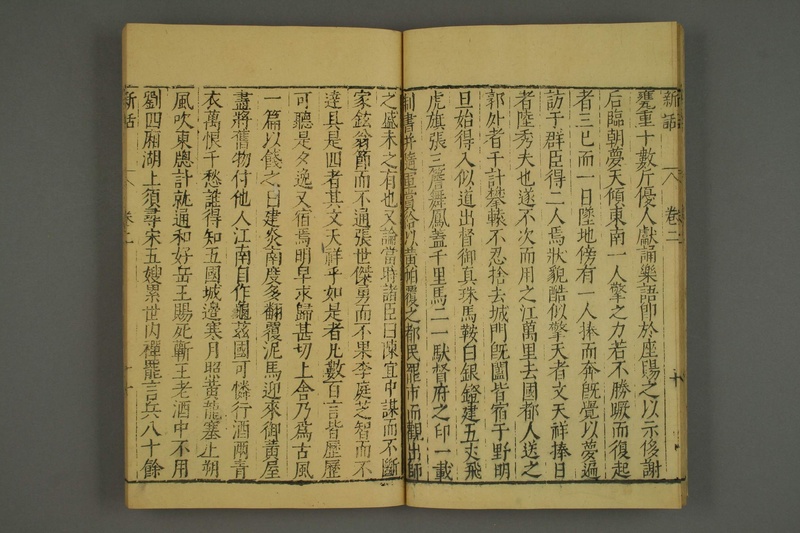 新話 卷二 十
甕重十數斤優人獻誦樂語即於座賜之以示後謝
后臨朝夢天傾東南一人擎之力若不勝蹶而復起
者三已而一日墜地傍有一人捧而奔旣覺以夢遍
訪于群臣得二人焉狀貌酷似擎天者文天祥捧日
者陸秀夫也遂不次而用之江萬里去國都人送之
郭外者千計攀轅不忍捨去城門旣闔皆宿于野明
旦始得入似道出督御真珠馬鞍白銀鎧建五丈飛
虎旗張三簷舞鳳蓋千里馬二一馱督府之印一載
制書并隨軍賞格以黄帕覆之都民罷市而觀出師
之盛未之有也又論當時諸臣曰陳宜中謀而不斷
家鉉翁節而不通張世傑勇而不果李庭芝智而不
達具是四者其文天祥乎如是者凡數百言皆歷歷
可聽是夕逸又宿焉明早求歸甚切上舍乃爲古風
一篇以餞之曰建炎南度多翻覆泥馬迎來御黄屋
盡將舊物付他人江南自作龜茲國可憐行酒兩青
衣萬恨千愁誰得知五國城邉寒月照黄龍塞上朔
風吹東牕計就通和好岳王賜死蘄王老酒中不用
劉四廂湖上須尋宋五嫂累世内禪罷言兵八十餘
新話 卷二